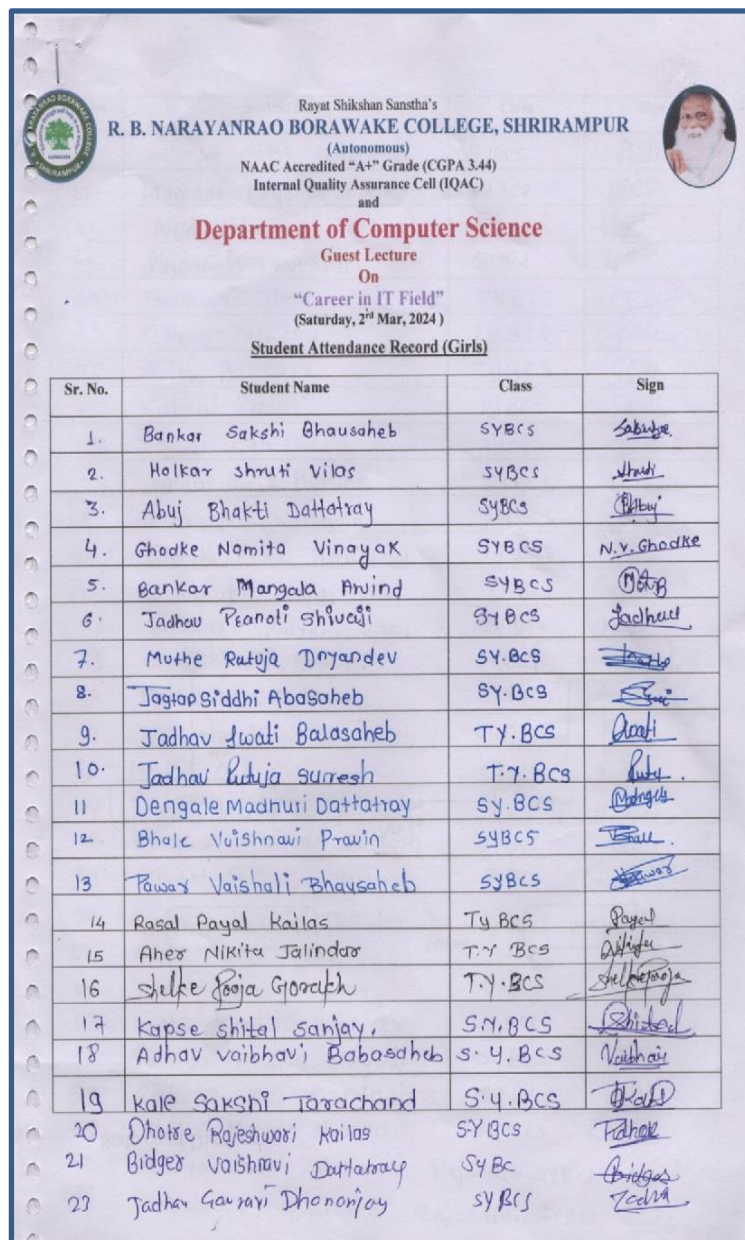 NARAYANRAO BORAWAKE COLLEGE
SHRIRAMPUR
Rayat Shikshan Sanstha's
R. B. NARAYANRAO BORAWAKE COLLEGE, SHRIRAMPUR
(Autonomous)
NAAC Accredited "A+" Grade (CGPA 3.44)
Internal Quality Assurance Cell (IQAC)
and
Department of Computer Science
Guest Lecture
On
"Career in IT Field"
(Saturday, 2rd Mar, 2024 )
Student Attendance Record (Girls)
Sr. No. Student Name Class Sign
1. Bankar Sakshi Bhausaheb SYBCS
2. Holkar shruti Vilas SYBCS
3. Abuj Bhakti Dattatray SyBCS BAbuj
4. Ghodke Namita Vinayak SYBCS N.V. Ghodke
5. Bankar Mangala Arvind SYBCS
6. Jadhav Pranoti Shivaji SYBCS Jadhav
7. Muthe Rutuja Dnyandev SY.BCS
8. Jagtap Siddhi Abasaheb SY.BCS
9. Jadhav Swati Balasaheb TY.BCS Swati
10. Jadhav Rutuja Surresh T.Y.BCS Rutu
11 Dengale Madhuri Dattatray Sy.BCS
12. Bhale Vaishnavi Pravin SYBCS Bhale
13 Pawar Vaishali Bhausaheb SYBCS Pawar
14 Rasal Payal Kailas Ty BCS Payal
15 Aher Nikita Jalindar T.Y BCS
16 Shelke Pooja Gorakh T.Y.BCS ShelkePooja
17 Kapse shital sanjay. S.Y.BCS Shital
18 Adhav vaibhavi Babasaheb S.Y.BCS Vaibhavi
19 Kale Sakshi Tarachand S.Y.BCS
20 Dhotre Rajeshwari Kailas SYBCS
21 Bidger vaishnavi Dattatray SyBC Bidger
23 Jadhav Gauravi Dhananjay SYBCS